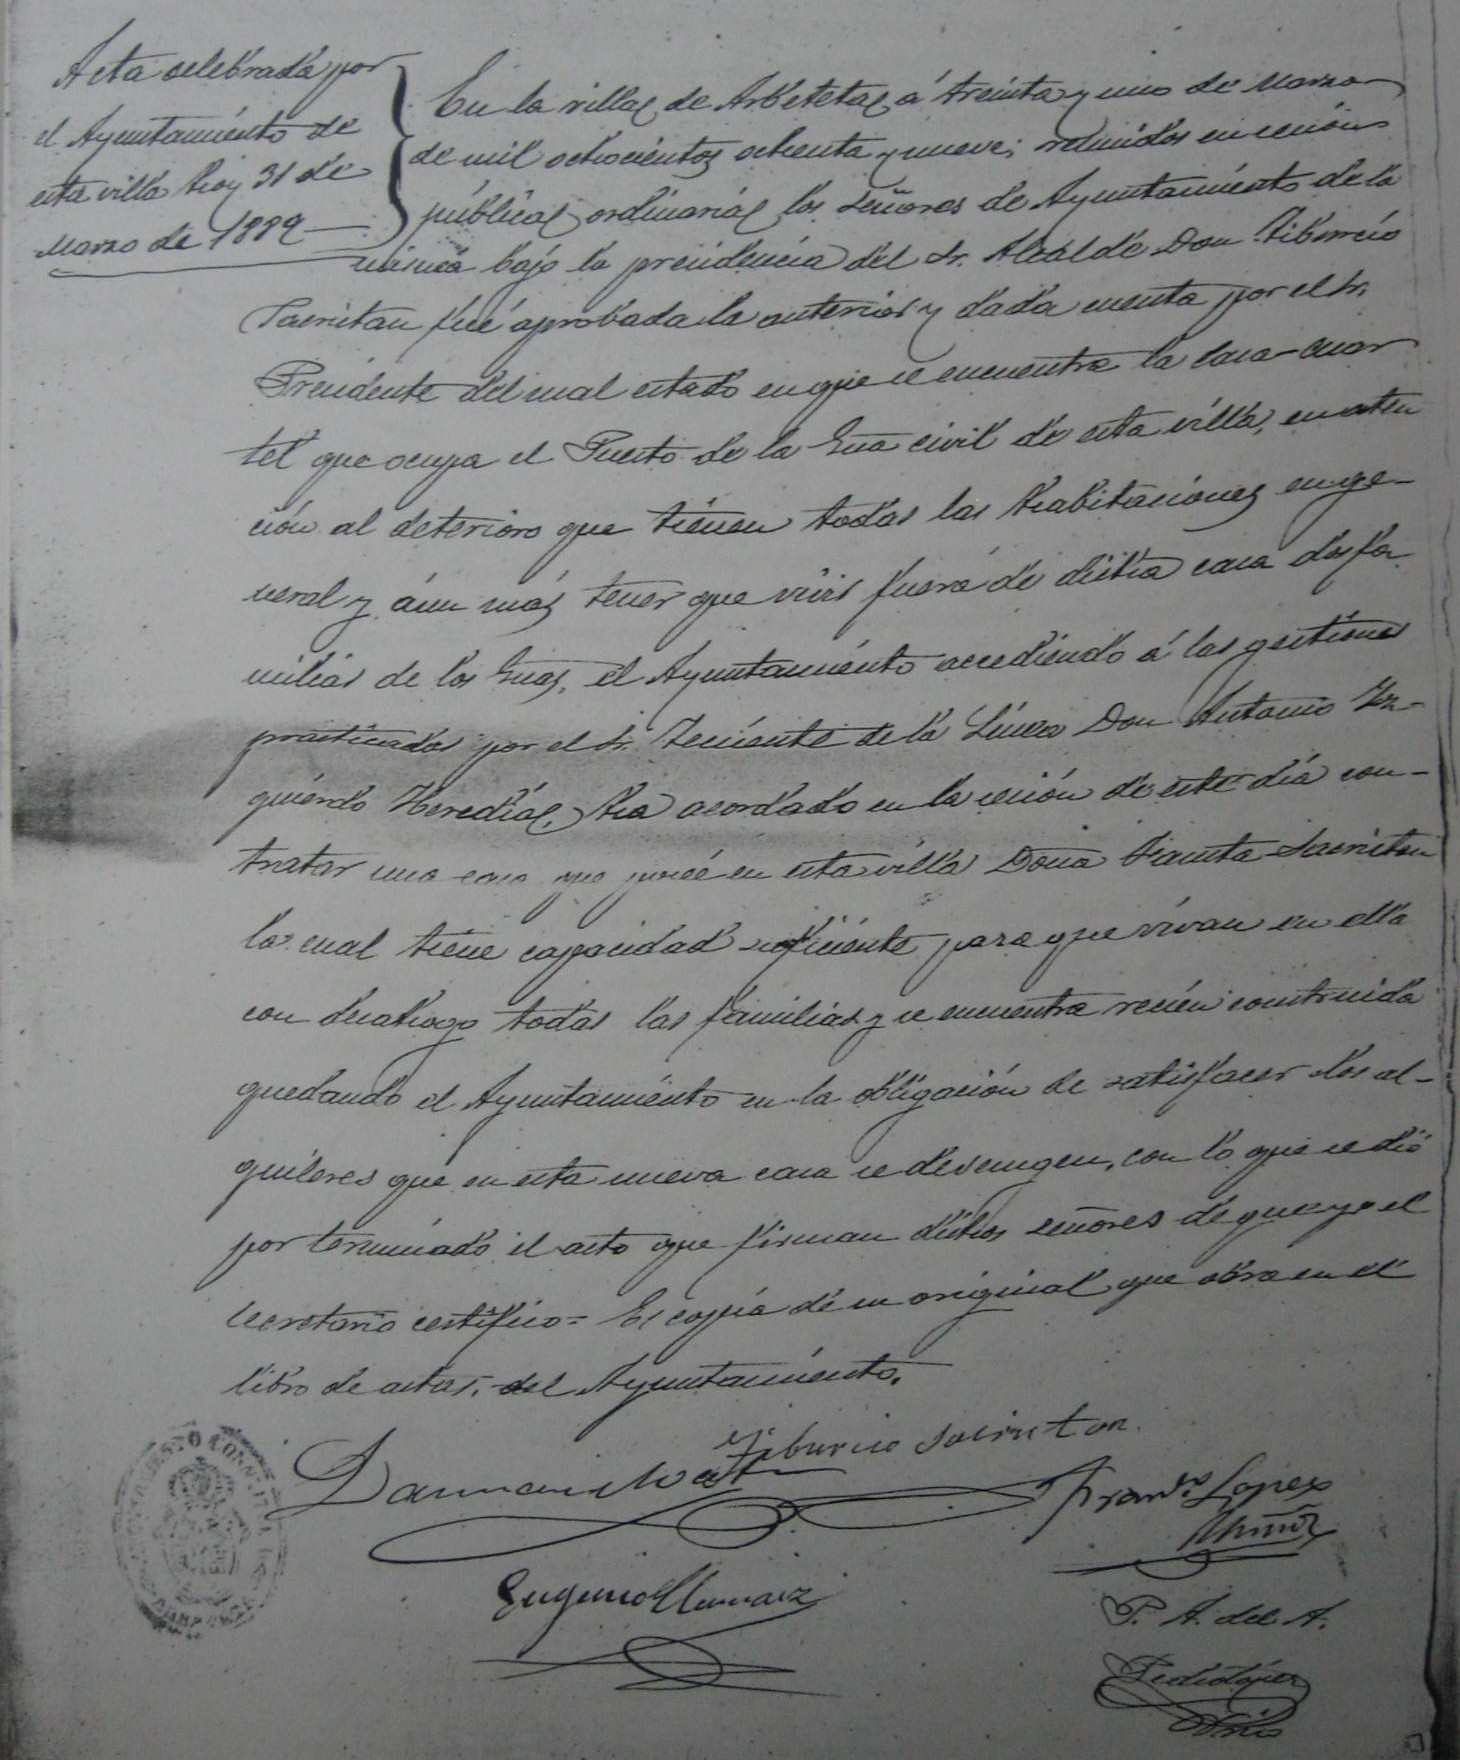 Acta celebrada por
el Ayuntamiento de
esta villa hoy 31 de
Marzo de 1889
En la villa de Arbeteta, á treinta y uno de Marzo
de mil ochocientos ochenta y nueve; reunidos en sesión
pública ordinaria los señores de Ayuntamiento de la
misma bajo la presidencia del Sr. Alcalde Don Tiburcio
Sacristan fué aprobada la anterior y dada cuenta por el Sr.
Presidente del mal estado en que se encuentra la casa-cuar
tel que ocupa el Puesto de la Gua civil de esta villa, en aten
ción al deterioro que tienen todas las habitaciones en ge-
neral y áun más tener que vivir fuera de dicha casa dos fa
milias de los Guas, el Ayuntamiento accediendo á las gestiones
practicadas por el Sr. Teniente de la Línea Don Antonio Iz-
quierdo Heredia, ha acordado en la sesión de este dia con-
tratar una casa que posée en esta villa Doña Sacristan
la cual tiene capacidad suficiente para que vivan en ella
con desahogo todas las familias y se encuentra recién construida
quedando el Ayuntamiento en la obligación de satisfacer los al-
quileres que en esta nueva casa se devenguen, con lo que se dió
por terminado el acto que firman dichos señores de que yo el
Secretario certifico= Es copia de su original que obra en el
libro de actas, del Ayuntamiento.
Tiburcio Sacristan
Franco. Lopez
Eugenio
P. A. del A.
Pedro López